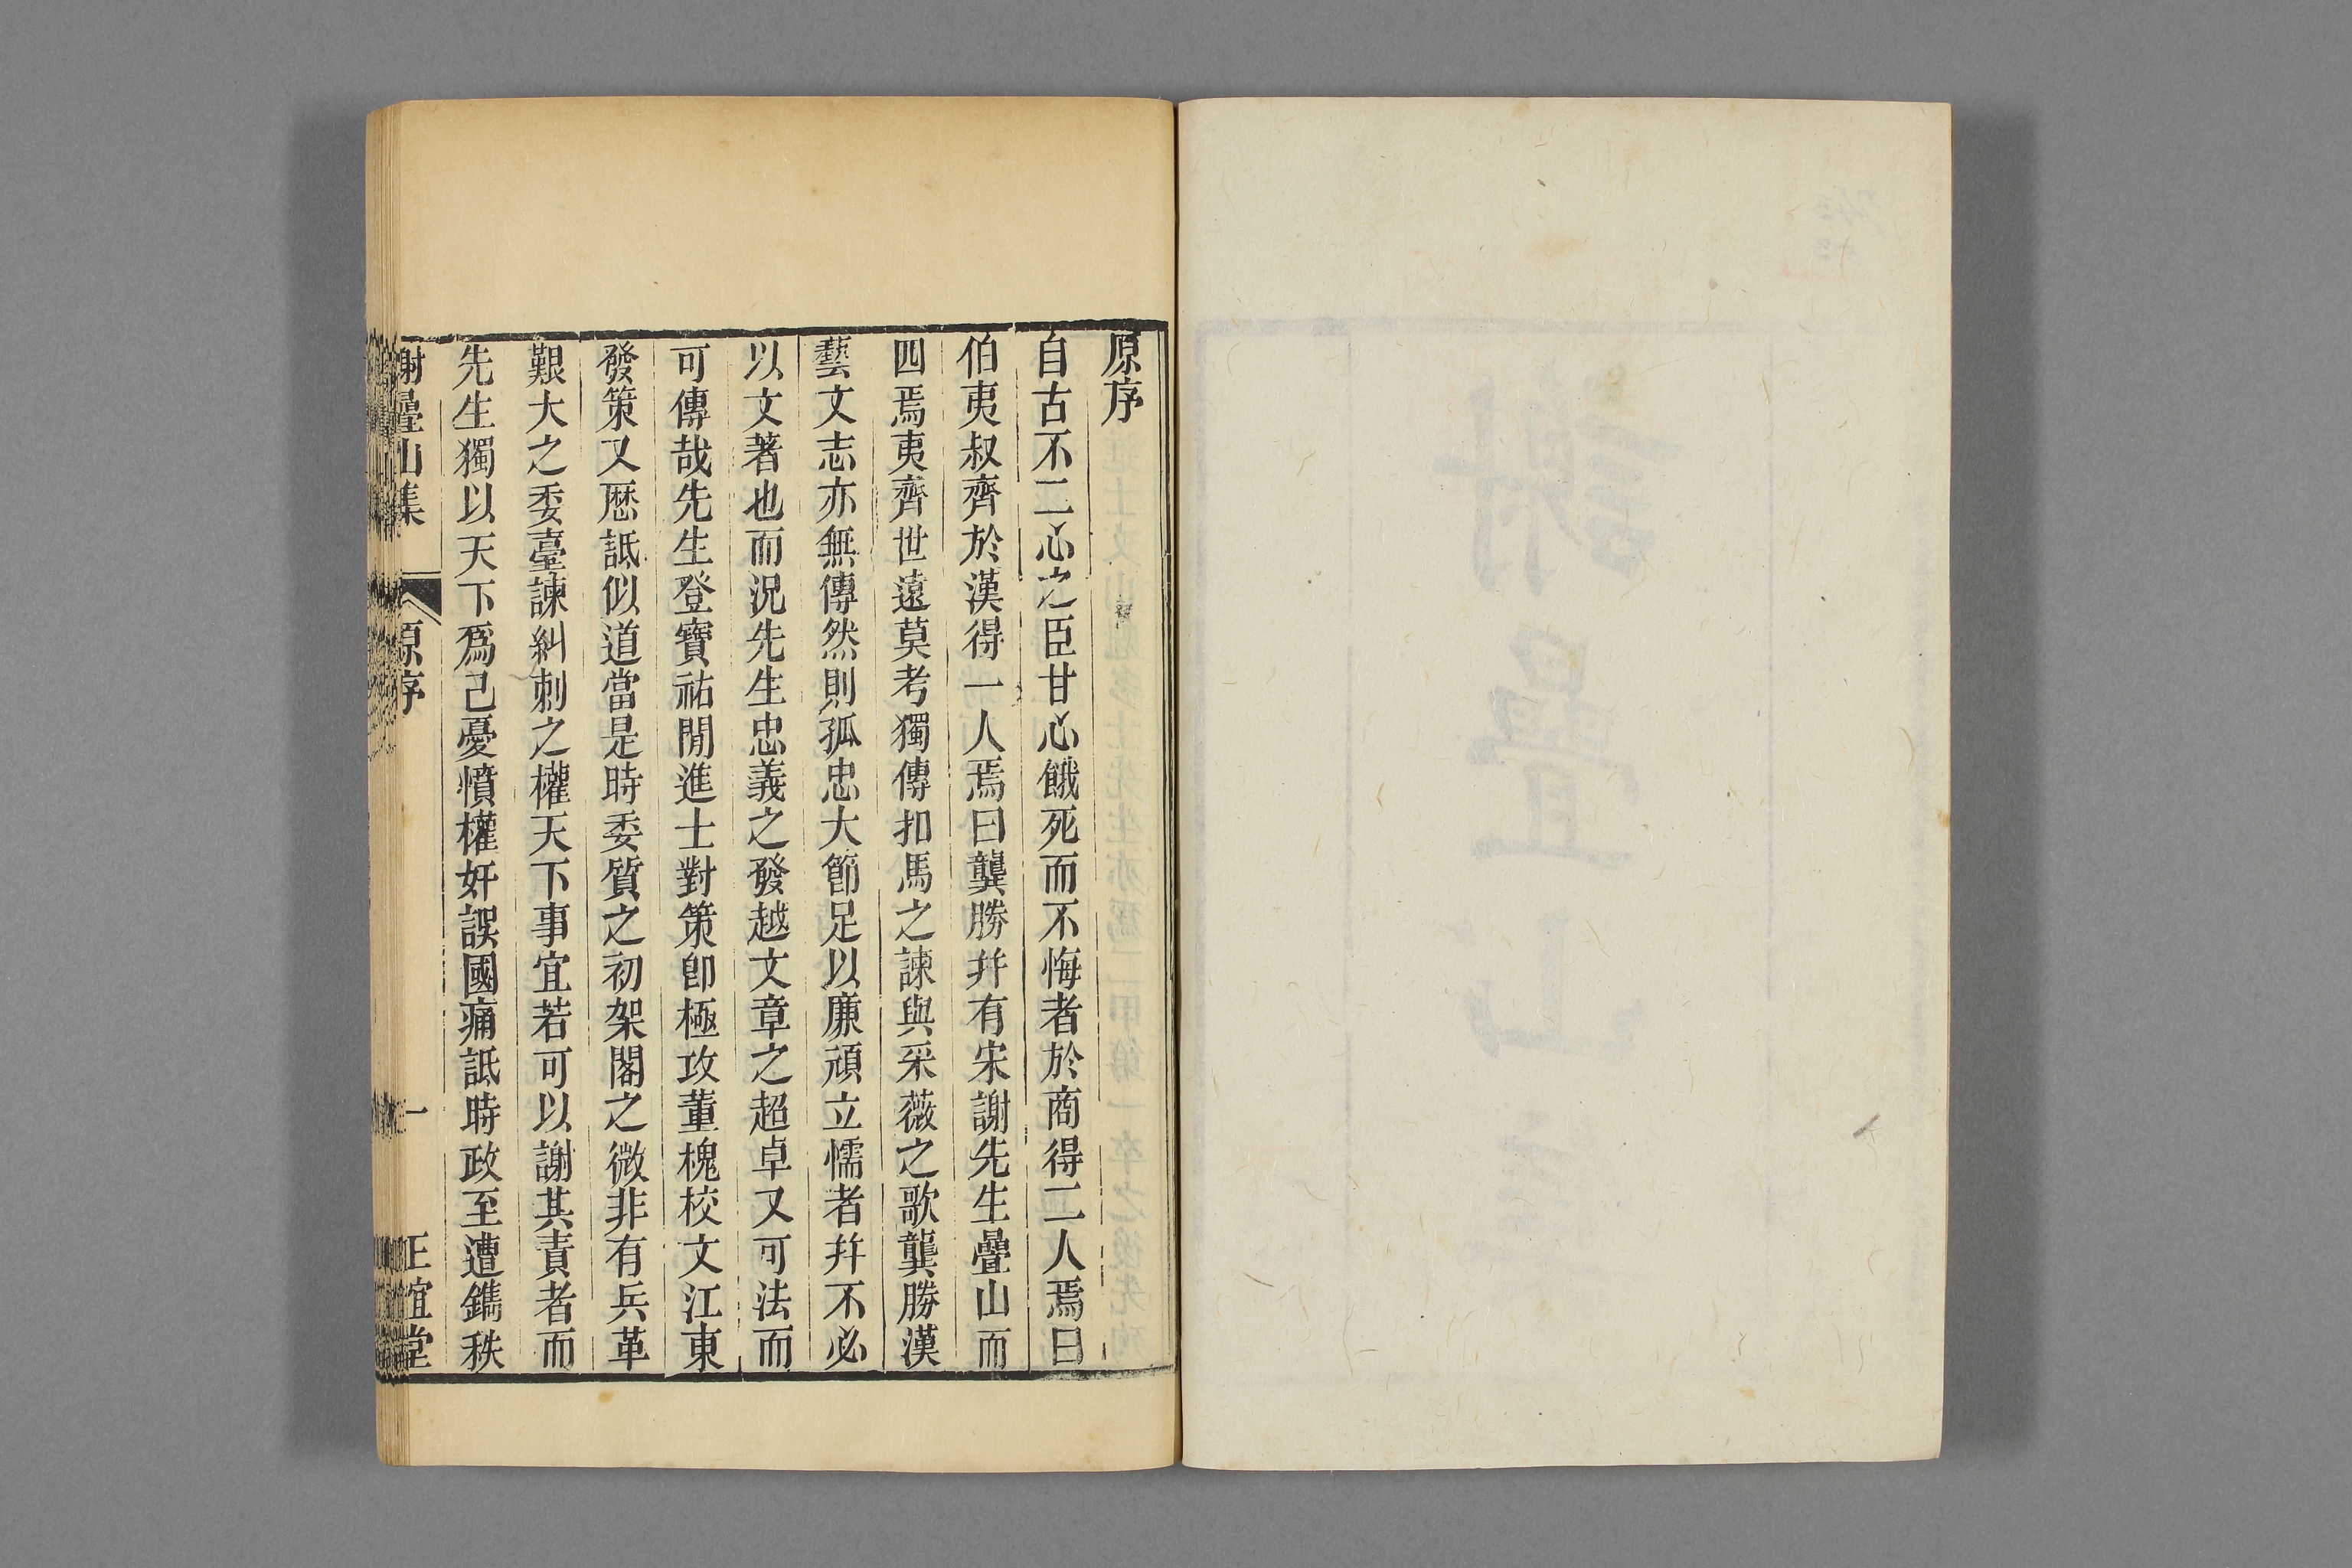 原序
自古不二心之臣甘心餓死而不悔者於商得二人焉曰
伯夷叔齊於漢得一人焉曰龔勝幷有宋謝先生疊山而
四焉夷齊世遠莫考獨傳扣馬之諫與采薇之歌龔勝漢
藝文志亦無傳然則孤忠大節足以廉頑立懦者幷不必
以文著也而況先生忠義之發越文章之超卓又可法而
可傳哉先生登寶祐閒進士對策卽極攻董槐校文江東
發策又歷詆似道當是時委質之初架閣之微非有兵革
艱大之委臺諫糾刺之權天下事宜若可以謝其責者而
先生獨以天下爲己憂憤權奸誤國痛詆時政至遭鐫秩
謝疊山集
原序
一
正誼堂